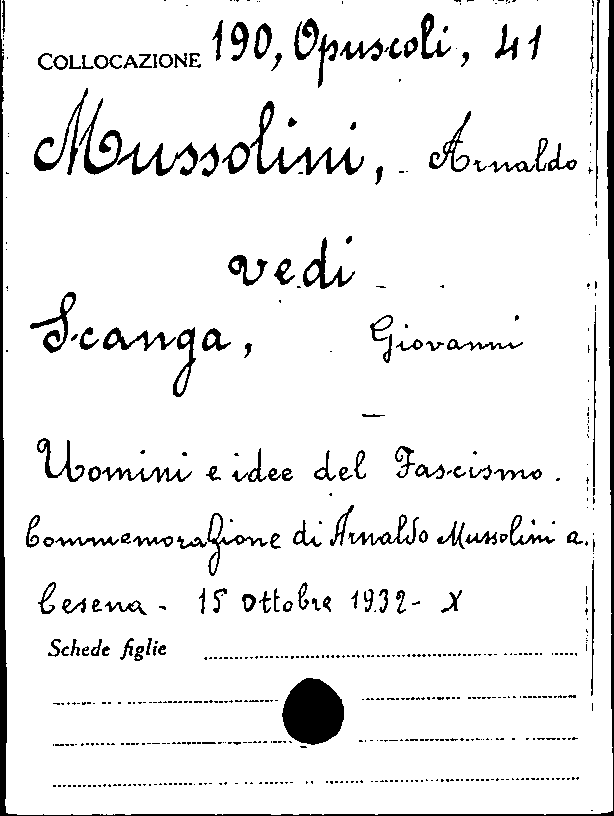 COLLOCAZIONE 190, Opuscoli, 41
Mussolini, Arnaldo
vedi
Scanga, Giovanni
—
Uomini e idee del Fascismo.
Commemorazione di Arnaldo Mussolini a
Cesena - 15 Ottobre 1932 - X
Schede figlie